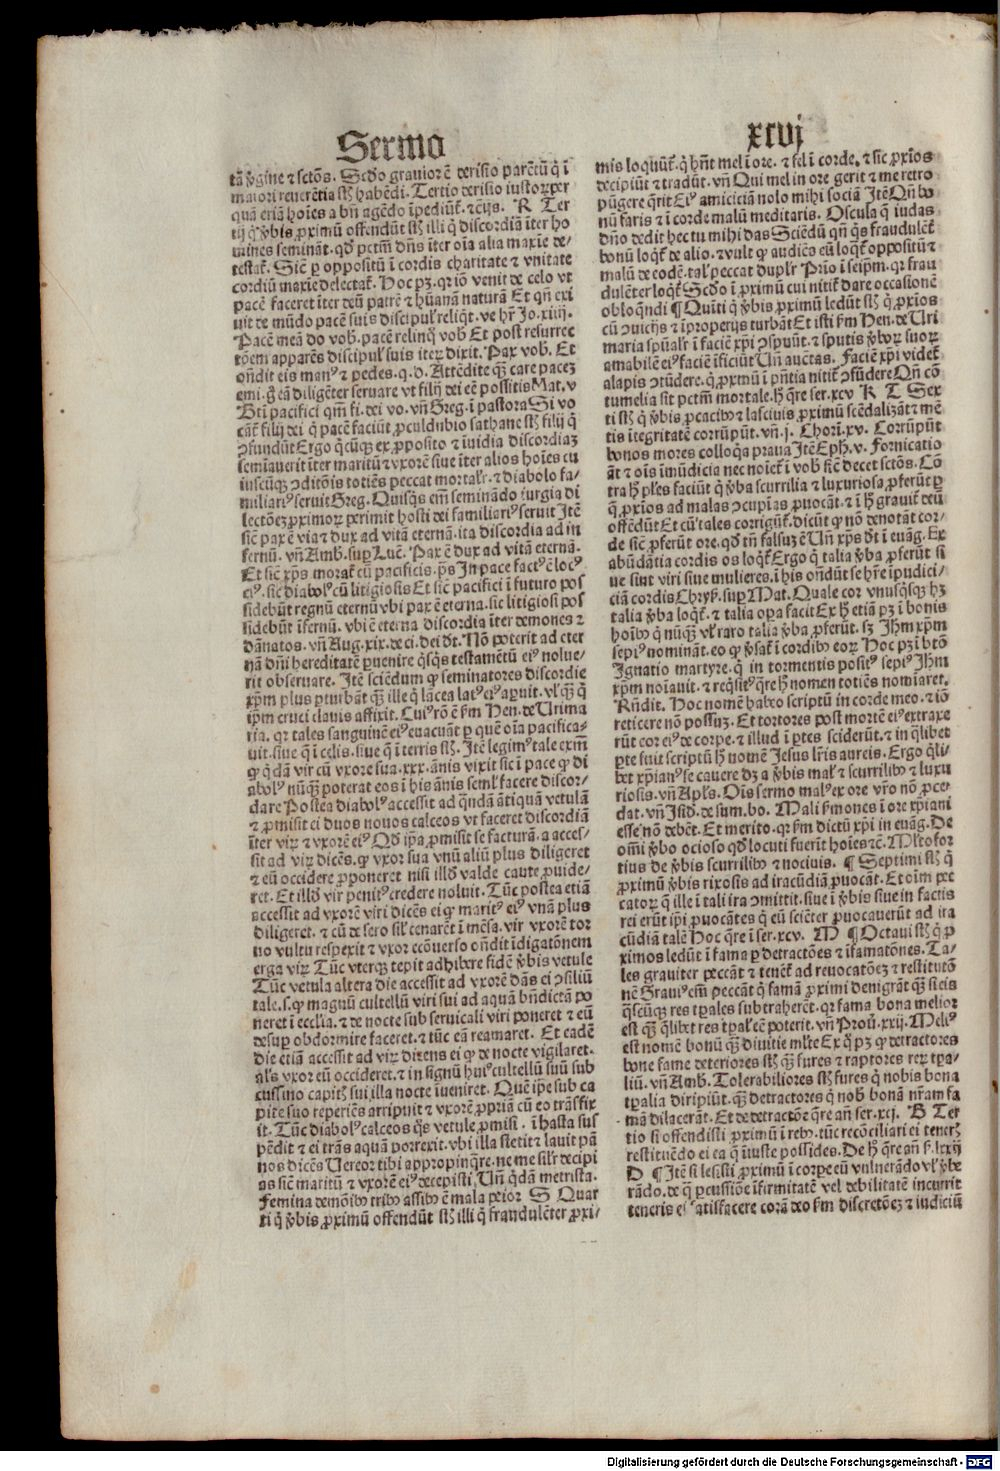 Sermo
xcvj
tā v̓gine ⁊ sctōs. Scd̓o grauior ē derisio parētū q̄ ī
maiori reuerētia sūt habēdi. Tertio derisio iustoꝝ per
quā etiā hoīes a bn̄ agēdo īpediūt̄. ⁊cēijs. R Ter
tij q̄ v̓bis ꝓximū offendūt sūt illi q̄ discordiā īter ho
mines semināt. qd̓ pctm̄ dn̄s īter oīa alia maxīe de/
testat̄. Sic̄ ꝑ oppositū ī cordis charitate ⁊ vnitate
cordiū maxīe delectat̄. Hoc pꝫ. qꝛ iō venit de celo vt
pacē faceret īter deū patrē ⁊ hūanā naturā Et qn̄ exi
uit de mūdo pacē suis discipul̓ reliq̄t. ve hr̄ Jo. xiiij.
Pacē meā do vob̓. pacē relinq̄ vob̓ Et post resurrec
tōem apparēs discipul̓ suis iteꝝ dixit. Pax vob̓. Et
on̄dit eis manꝰ ⁊ pedes. q. d. Attēdite qꝫ̄ care pacez
emi. g̊ eā diligēter seruare vt filij dei eē possitis Mat. v
Bt̄i pacifici qm̄ fi. dei vo. vn̄ Greg. ī pastora Si vo
cāt̄ filij dei q̄ pacē faciūt ꝓculdubio sathane sūt filij q̄
ↄfundūt Ergo q̄cūqꝫ ex ꝓposito ⁊ īuidia discordiaꝫ
semīauerit īter maritū ⁊ vxorē siue īter alios hoīes cu
iuscūqꝫ ↄditōis totiēs peccat mortal̓r. ⁊ diabolo fa-
miliariꝰ seruit Greg. Quisq̄s em̄ seminādo iurgia di
lectōeꝫ ꝓximoꝝ perimit hosti dei familiariꝰ seruit Itē
sic̄ pax ē via ⁊ dux ad vitā eternā. ita discordia ad in
fernū. vn̄ Amb. suꝑ Luc̄. Pax ē dux ad vitā eternā.
Et sic̄ xp̄s morat̄ cū pacificis. ps̄ In pace factꝰ ē locꝰ
eiꝰ. sic̄ diabolꝰ cū litigiosis Et sic̄ pacifici ī futuro pos
sidebūt regnū eternū vbi pax ē eterna. sic litigiosi pos
sidebūt īfernū. vbi ē eterna discordia īter demones ⁊
dānatos. vn̄ Aug. xix. de ci. dei dt̄. Nō poterit ad eter
nā dn̄i hereditatē ꝑuenire q̄sq̄s testamētū eiꝰ nolue-
rit obseruare. Itē sciēdum ꝙ seminatores discordie
xp̄m plus ꝑturbāt qꝫ̄ ille q̄ lācea latꝰ eiꝰ aꝑuit. vl̓ qꝫ̄ q̄
ip̄m cruci clauis affixit. Cuiꝰ rō ē ẜm Hen. de Vrima
ria. qꝛ tales sanguinē eiꝰ euacuāt ꝑ quē oīa pacifica-
uit. siue q̄ ī celis. siue q̄ ī terris sūt. Itē legimꝰ tale exm̄
ꝙ q̄dā vir cū vxore sua .xxx. ānis vixit sic ī pace ꝙ di
abolꝰ nūqꝫ̄ poterat eos ī his ānis seml̓ facere discor/
dare Postea diabolꝰ accessit ad q̄ndā ātiquā vetulā
⁊ ꝓmisit ei duos nouos calceos vt faceret discordiā
īter viꝝ ⁊ vxorē eiꝰ Qd̓ ip̄a ꝓmisit se facturā. ⁊ acces/
sit ad viꝝ dicēs. ꝙ vxor sua vnū aliū plus diligeret
⁊ eū occidere ꝓponeret nisi ill̓d valde caute ꝓuide/
ret. Et ill̓d vir penitꝰ credere noluit. Tūc postea etiā
accessit ad vxorē viri dicēs ei ꝙ maritꝰ eiꝰ vnā plus
diligeret. ⁊ cū de sero sil̓ cenarēt ī mēsa. vir vxorē tor
uo vultu respexit ⁊ vxor ecōuerso on̄dit īdigatōnem
erga viꝝ Tūc vterqꝫ cepit adhibere fidē v̓bis vetule
Tūc vetula altera die accessit ad vxorē dās ei ↄsiliū
tale. s. ꝙ magnū cultellū viri sui ad aquā bn̄dictā po
neret ī eccl̓ia. ⁊ de nocte sub seruicali viri poneret ⁊ eū
desuꝑ obdormire faceret. ⁊ tūc eā reamaret. Et eadē
die etiā accessit ad viꝝ dixens ei ꝙ de nocte vigilaret.
al̓s vxor eū occideret. ⁊ in signū huiꝰ cultellū suū sub
cussino capitꝭ sui illa nocte īueniret. Quē ip̄e sub ca
pite suo reperiēs arripuit ⁊ vxorē ꝓpriā cū eo trāsfix
it. Tūc diabolꝰ calceos q̄s vetule ꝓmisit. ī hasta sus
pēdit ⁊ ei trās aquā porrexit. vbi illa stetit ⁊ lauit pā
nos dicēs Vereor tibi appropinq̄re. ne me sil̓r decipi
as sic̄ maritū ⁊ vxorē eiꝰ decepisti. Vn̄ q̄dā metrista.
Femina demōiby triby assiby ē mala peior S Quar
ti q̄ v̓bis ꝓximū offendūt sūt illi q̄ fraudulēter ꝓxi/
mis loquūt̄. q̄ hn̄t mel ī ore. ⁊ fel ī corde. ⁊ sic ꝓxīos
decipiūt ⁊ tradūt. vn̄ Qui mel in ore gerit ⁊ me retro
pūgere q̄rit Eiꝰ amiciciā nolo mihi sociā Itē Qn̄ bo
nū faris ⁊ ī corde malū meditaris. Oscula q̄ iudas
dn̄o dedit hec tu mihi das Sciēdū qn̄ q̄s fraudulēt̄
bonū loq̄t̄ de alio. ⁊ vult ꝙ audiēs eū loq̄t̄ oppositū ⁊
malū de eodē. tal̓ peccat dupl̓r Prīo ī seip̄m. qꝛ frau
dulēter loq̄t̄ Scd̓o ī ꝓximū cui nitit̄ dare occasionē
obloq̄ndi ¶ Quīti q̄ v̓bis ꝓximū ledūt sūt q̄ ꝓxīos
cū ↄuicijs ⁊ īproperijs turbāt Et isti ẜm Hen. de Vri
maria spūal̓r ī faciē xp̄i ↄspuūt. ⁊ sputis v̓boꝝ suoꝝ
amabilē eiꝰ faciē īficiūt Vn̄ auctas. Faciē xp̄i videt̄
alapis ↄtūdere. q̄ ꝓxmū ī pn̄tia nitit̄ ↄfūdere Qn̄ cō
tumelia sit pctm̄ mortale. hꝫ q̄re ser. xcv K T Sex
ti sūt q̄ v̓bis ꝓcaciby ⁊ lasciuis ꝓximū scēdalizāt ⁊ mē
tis ītegritatē corrūpūt. vn̄ .j. Chorī. xv. Corrūpūt
bonos mores colloq̄a praua Itē Eph̓. v. Fornicatio
āt ⁊ oīs īmūdicia nec noīet̄ ī vob̓ sic̄ decet sctōs. Cō
tra h̓ ples faciūt q̄ v̓ba scurrilia ⁊ luxuriosa ꝓferūt ꝑ
q̄ ꝓxīos ad malas ↄcupīas ꝓuocāt. ⁊ ī h̓ grauit̄ deū
offēdūt Et cū tales corrigūt̄. dicūt ꝙ nō denotāt cor/
de sic̄ ꝓferūt ore. qd̓ tn̄ falsuꝫ ē Vn̄ xp̄s dt̄ ī euāg. Ex
abūdātia cordis os loq̄t̄ Ergo q̄ talia v̓ba ꝓferūt si
ue sint viri siue mulieres. ī his on̄dūt se hr̄e īpudici/
ciā cordis Chrys̄. suꝑ Mat. Quale cor vnusq̄sqꝫ hꝫ
talia v̓ba loq̄t̄. ⁊ talia oꝑa facit Ex h̓ etiā pꝫ ī bonis
hoīby q̄ nūqꝫ̄ vl̓ raro talia v̓ba ꝓferūt. sꝫ Jhm̄ xp̄m
sepiꝰ nomināt. eo ꝙ v̓sat̄ ī cordiby eoꝝ Hoc pꝫ ī bt̄o
Ignatio martyre. q̄ in tormentis positꝰ sepiꝰ Jhm̄
xp̄m noīauit. ⁊ req̄sitꝰ q̄re h̓ nomen totiēs nomīaret.
Rn̄dit. Hoc nomē habeo scriptū in corde meo. ⁊ iō
reticere nō possuꝫ. Et tortores post mortē eiꝰ extraxe
rūt cor eiꝰ de corꝑe. ⁊ illud ī ꝑtes sciderūt. ⁊ in q̄libet
ꝑte fuit scriptū h̓ nomē Jesus lr̄is aureis. Ergo q̄li/
bet xp̄ianꝰ se cauere dꝫ a v̓bis mal̓ ⁊ scurriliby ⁊ luxu
riosis. vn̄ Apl̓s. Oīs sermo malꝰ ex ore vr̄o nō ꝓce/
dat. vn̄ Isid̓. de sum. bo. Mali ẜmones ī ore xp̄iani
esse nō debēt. Et merito. qꝛ ẜm dictū xp̄i in euāg. De
om̄i v̓bo ocioso qd̓ locuti fuerīt hoīes ⁊c̄. Ml̓to for
tius de v̓bis scurriliby ⁊ nociuis. ¶ Septimi sūt q̄
ꝓximū v̓bis rixosis ad iracūdiā ꝓuocāt. Et oīm pec
catoꝝ q̄ ille ī tali ira ↄmittit. siue ī v̓bis siue in factis
rei erūt ip̄i ꝓuocātes q̄ eū sciēter ꝓuocauerūt ad ira
cūdiā talē Hoc q̄re ī ser. xcv. M ¶ Octaui sūt q̄ ꝓ
ximos ledūt ī fama ꝑ detractōes ⁊ īfamatōnes. Ta/
les grauiter peccāt ⁊ tenēt̄ ad reuocatōeꝫ ⁊ restitutō
nē Grauiꝰ em̄ peccāt q̄ famā ꝓximi denigrāt qꝫ̄ si eis
q̄scūqꝫ res tꝑales subtraherēt. qꝛ fama bona melior
est qꝫ̄ q̄libet res tꝑal̓ eē poterit. vn̄ Prou̓. xxij. Meliꝰ
est nomē bonū qꝫ̄ diuitie ml̓te Ex q̄ pꝫ ꝙ detractores
bone fame deteriores sūt qꝫ̄ fures ⁊ raptores reꝝ tꝑa-
liū. vn̄ Amb̓. Tolerabiliores sūt fures q̄ nobis bona
tꝑalia diripiūt. qꝫ̄ detractores q̄ nob̓ bonā nr̄am fa
mā dilacerāt. Et de detractōe q̄re an̄ ser. xcj. B Ter
tio si offendisti ꝓximū ī reby. tūc recōciliari ei teneris
restituēdo ei ea q̄ īiuste possides. De h̓ q̄re an̄ ẜ. lxxij
D ¶ Itē si lesisti ꝓximū ī corꝑe eū vulnerādo vl̓ v̓be
rādo. de q̄ ꝑcussiōe īfirmitatē vel debilitatē incurrit
teneris ei satisfacere corā deo ẜm discretōeꝫ ⁊ iudiciū
Digitalisierung gefördert durch die Deutsche Forschungsgemeinschaft - DFG